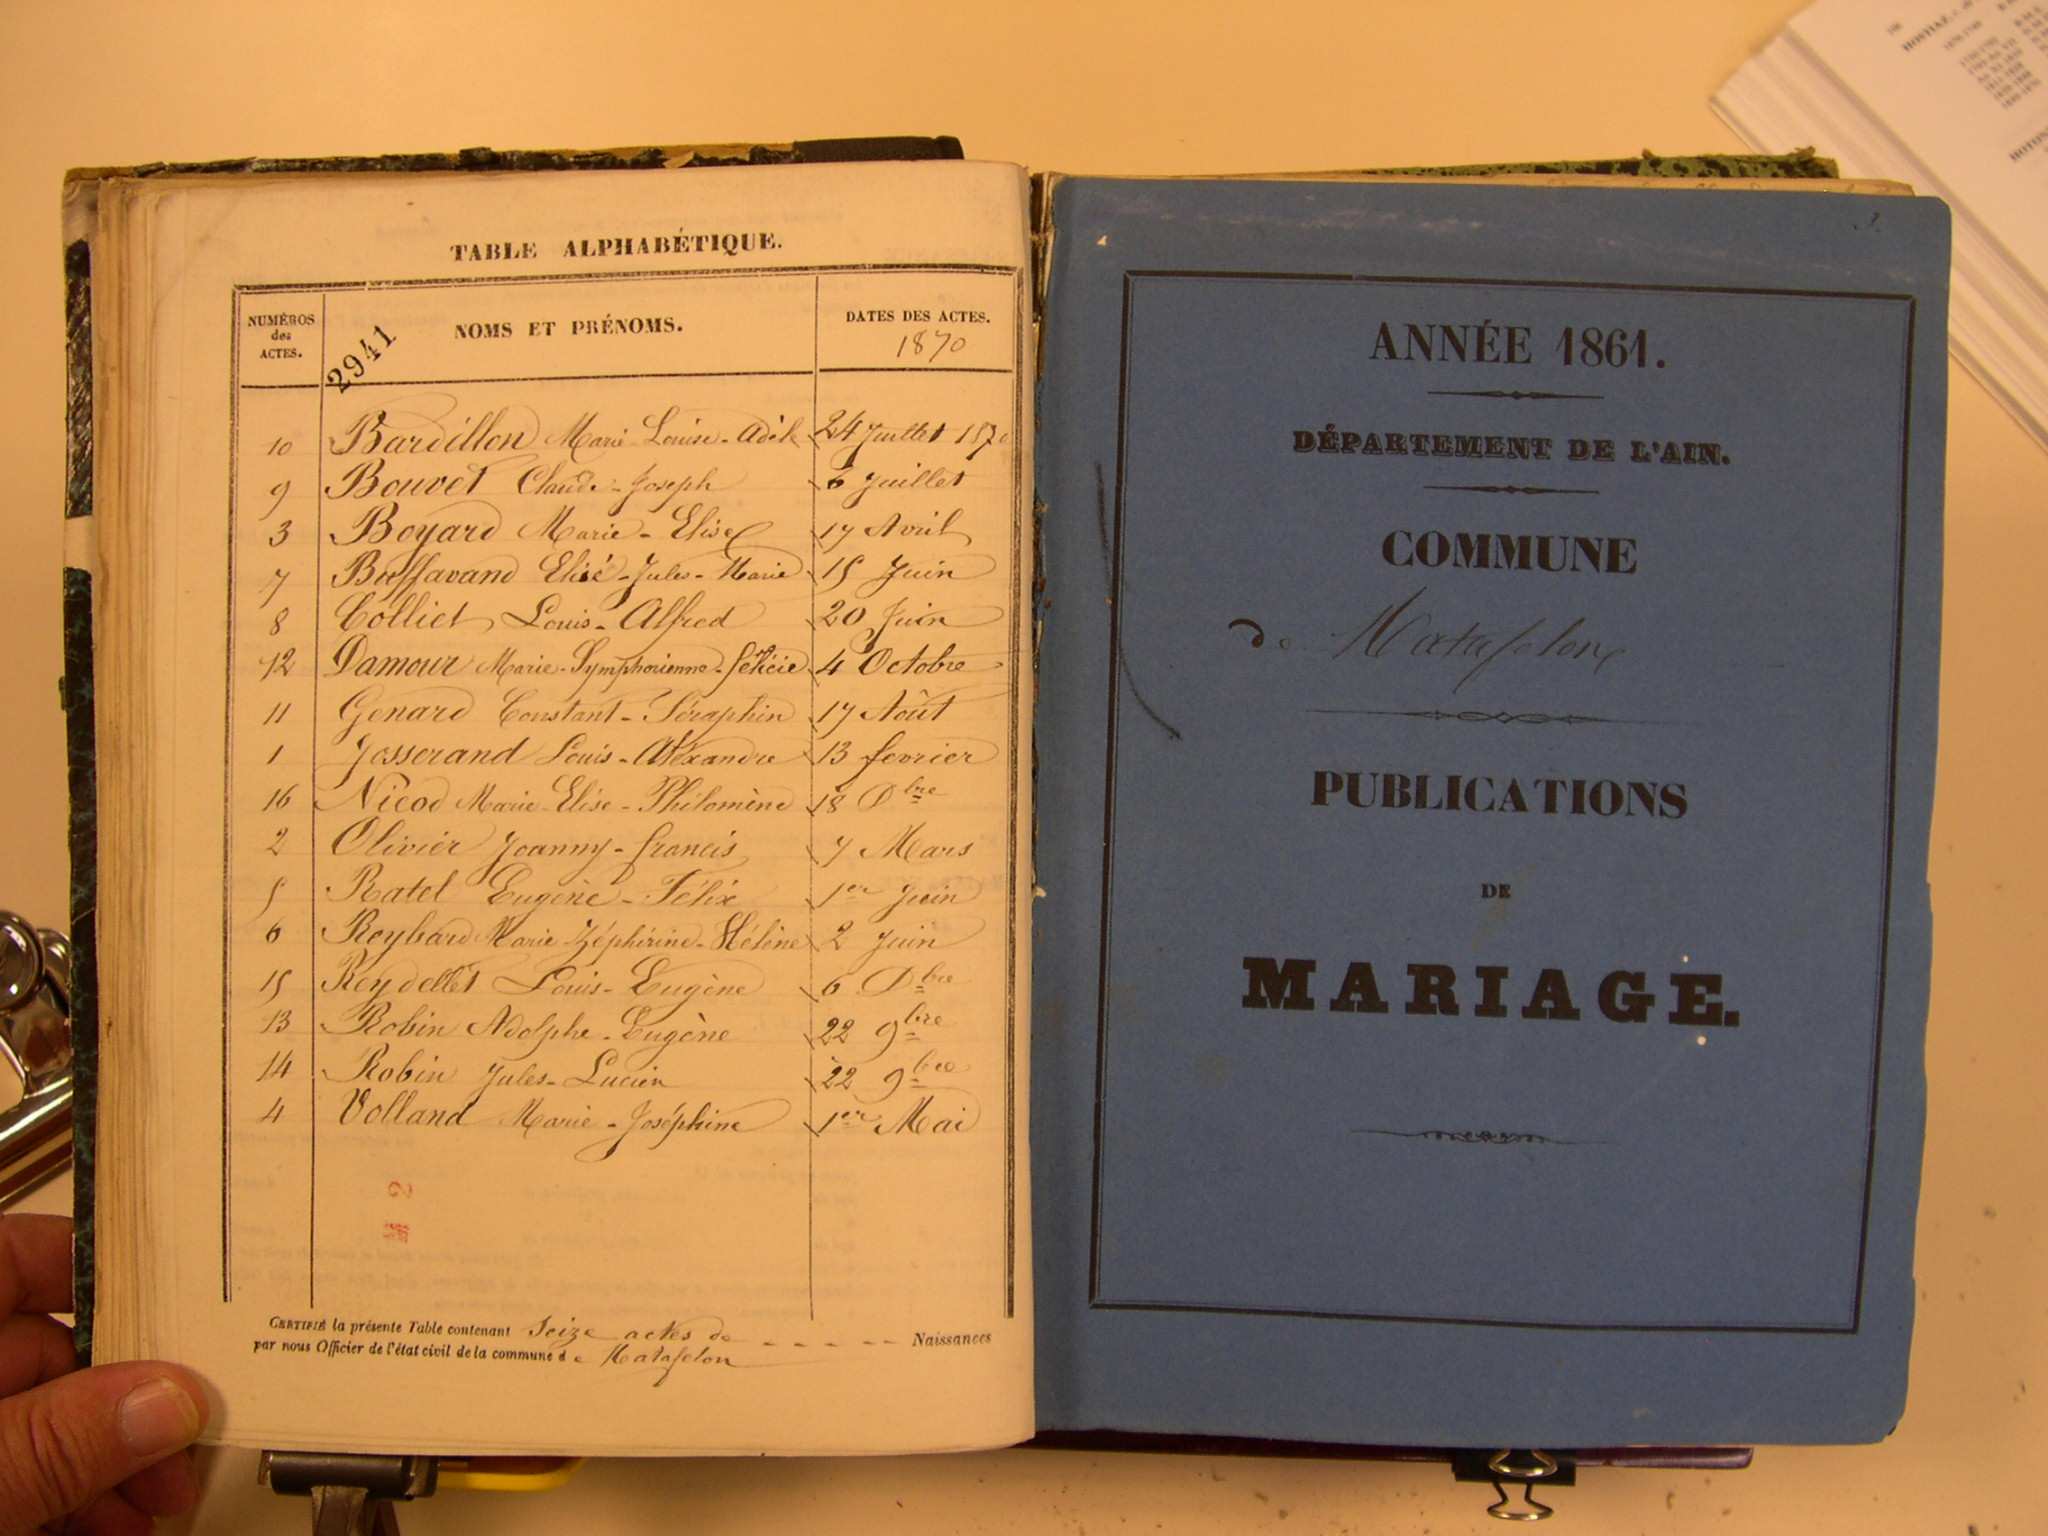 TABLE ALPHABÉTIQUE.
NUMÉROS des ACTES.
2941
NOMS ET PRÉNOMS.
DATES DES ACTES.
1870
10 Bardillon Marie-Louise-Adèle 24 Juillet 1870
9 Bouvet Claude-Joseph 6 Juillet
3 Boyard Marie-Elise 17 Avril
7 Buffavand Elisé-Jules-Marie 15 Juin
8 Colliet Louis-Alfred 20 Juin
12 Damour Marie-Symphorienne-félicie 4 Octobre
11 Genard Constant-Séraphin 17 Août
1 Josserand Louis-Aléxandre 13 fevrier
16 Nicod Marie-Elise-Philomène 18 Dbre
2 Olivier Joanny-francis 7 Mars
5 Ratel Eugène-Félix 1er Juin
6 Reybard Marie Zéphirine-Hélène 2 Juin
15 Reydellet Louis-Eugène 6 Dbre
13 Robin Adolphe-Eugène 22 9bre
14 Robin Jules-Lucien 22 9bre
4 Volland Marie-Joséphine 1er Mai
CERTIFIÉ la présente Table contenant Seize actes de - - - - - Naissances
par nous Officier de l'état civil de la commune de Matafelon
3.
ANNÉE 1861.
DÉPARTEMENT DE L'AIN.
COMMUNE
de Matafelon
PUBLICATIONS
DE
MARIAGE.